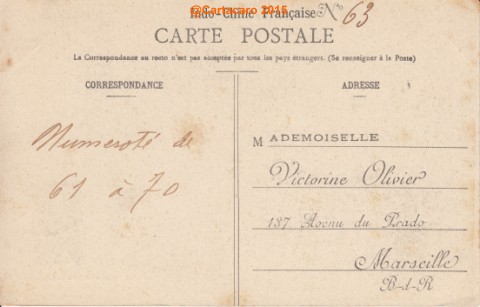 @Cartacaro 2015
Indo-Chine Française N° 63
CARTE POSTALE
La Correspondance au recto n'est pas acceptée par tous les pays étrangers. (Se renseigner à la Poste)
CORRESPONDANCE
Numeroté de
61 à 70
ADRESSE
MADEMOISELLE
Victorine Olivier
137 Avenu du Prado
Marseille
B-d-R